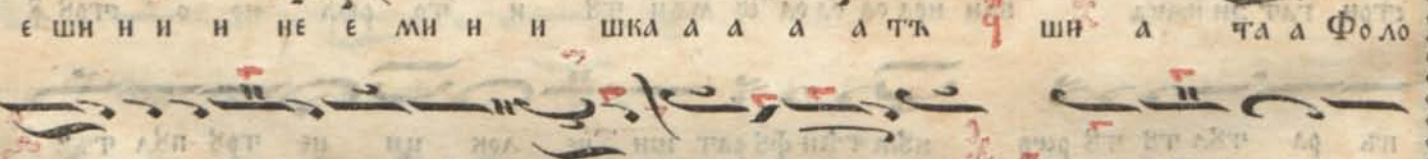 е ши н и и не е ми н и шка а а а а тъ ши а та а Фо ло